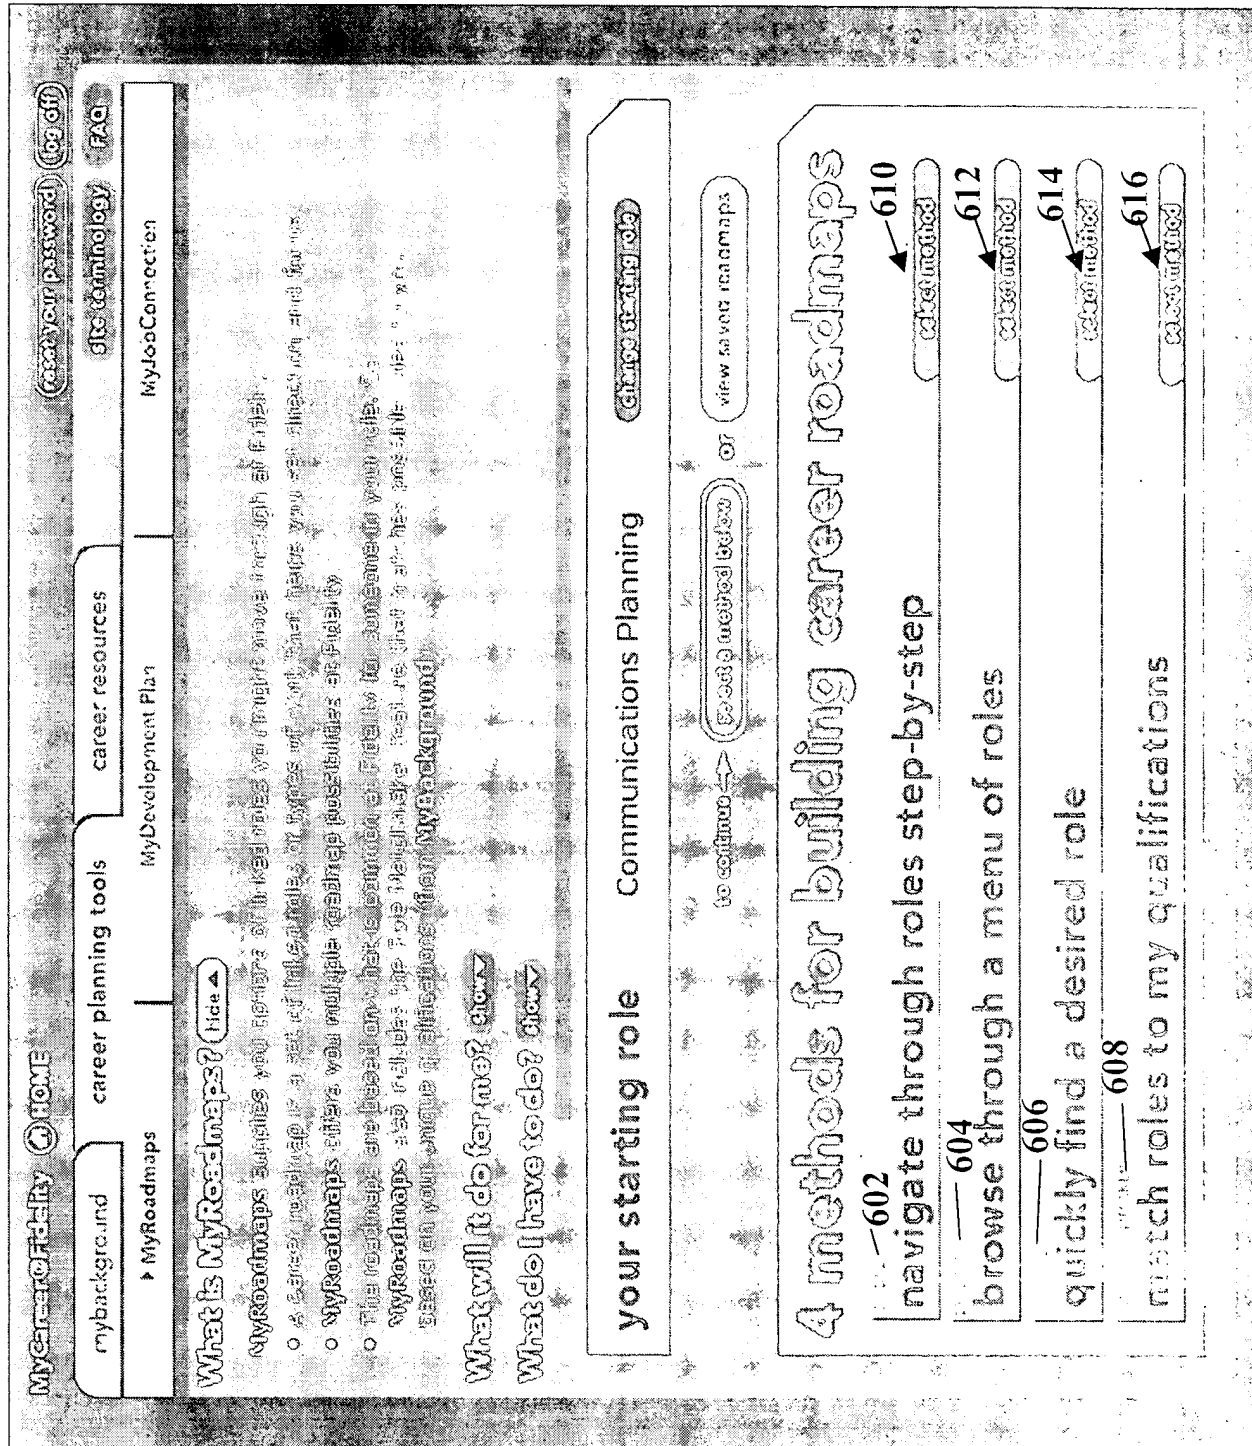 MyCareer@Fidelity HOME
reset your password log off
mybackground career planning tools career resources
site terminology FAQ
▸ MyRoadmaps MyDevelopment Plan MyJobConnection
What is MyRoadmaps? hide ▲
MyRoadmaps enables you to explore of linked roles you might move through at
○ A career roadmap is a set of roles or types of work that helps you see
○ MyRoadmaps offers you multiple roadmap possibilities at Fidelity
○ The roadmaps are based on what is common at Fidelity for someone in your role.
MyRoadmaps also includes the Role Matchmaker feature that
based on your unique qualifications from MyBackground
What will it do for me? show
What do I have to do? show
your starting role Communications Planning change starting role
to continue select a method below or view saved roadmaps
4 methods for building career roadmaps
602
navigate through roles step-by-step select method 610
604
browse through a menu of roles select method 612
606
quickly find a desired role select method 614
608
match roles to my qualifications select method 616